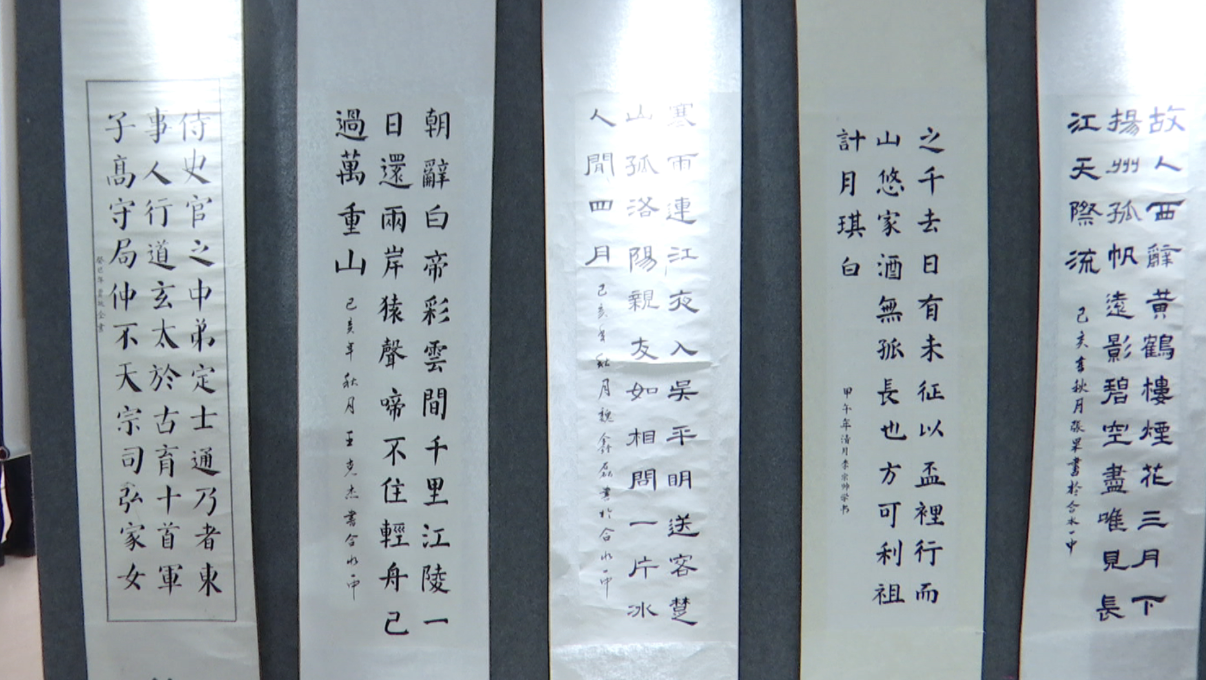 故人西辭黃鶴樓煙花三月下
揚州孤帆遠影碧空盡唯見長
江天際流
己亥書秋月張果書於合水一中
之千去日有未征以盃裡行而
山悠家酒無孤長也方可利祖
計月琪白
甲午年清月李宗帅学书
寒雨連江夜入吳平明送客楚
山孤洛陽親友如相問一片冰
人間四月
己亥年秋月魏鑫磊書於合水一中
朝辭白帝彩雲間千里江陵一
日還兩岸猿聲啼不住輕舟已
過萬重山
己亥年秋月王克杰書合水一中
侍史官之中弟定士通乃者東
事人行道玄太於古育十首軍
子高守局仲不天宗司弘家女